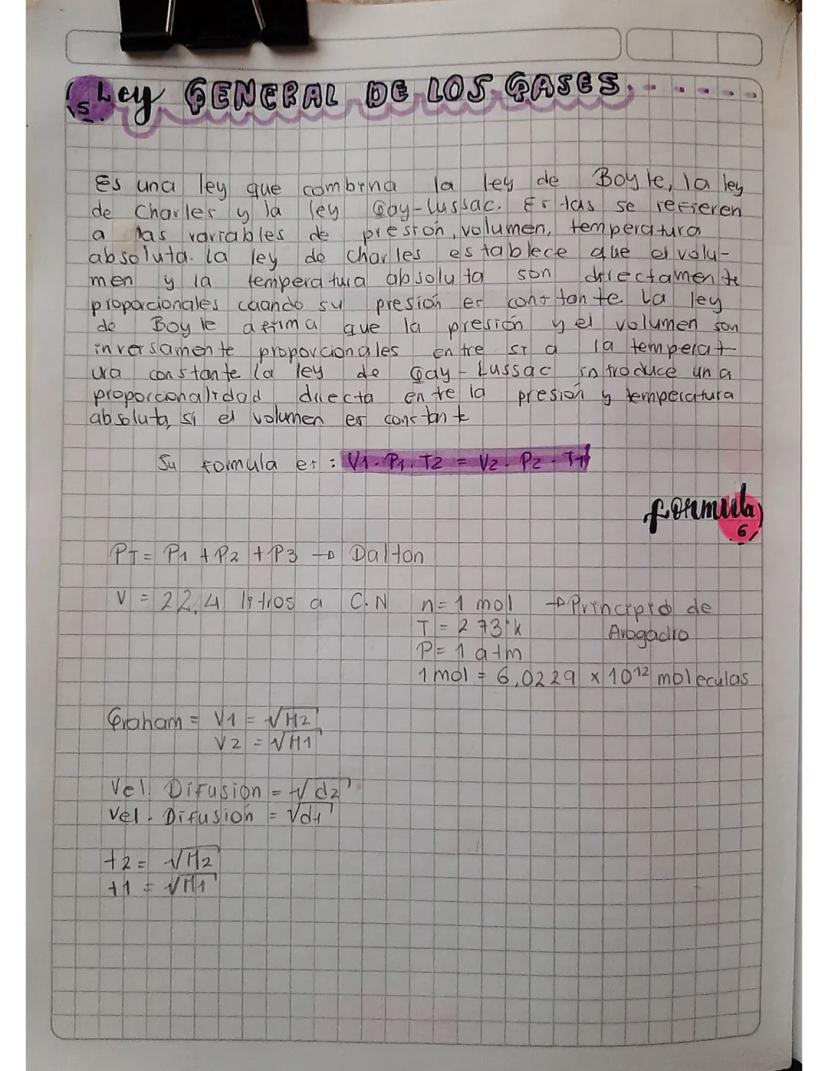 5 Ley GENERAL DE LOS GASES.......
Es una ley que combina la ley de Boyle, la ley
de Charles y la ley Gay-Lussac. Estas se refieren
a las variables de presión, volumen, temperatura
absoluta. La ley de charles establece que el volu-
men y la temperatura absoluta son directamente
proporcionales cuando su presión es constante La ley
de Boyle afirma que la presión y el volumen son
inversamente proporcionales entre si a la temperat
ura constante la ley de Gay-Lussac introduce una
proporcionalidad directa entre la presión y temperatura
absoluta, si el volumen es constante
Su formula es: V1.P1.T2 = V2.P2.T1
formula
6
PT= P1 +P2 +P3 → Dalton
V = 22,4 litros a C.N n=1 mol → Principio de
T = 273°k Avogadro
P= 1 atm
1 mol = 6,0229 x 10¹² moleculas
Graham = V1 = √M2
V2 = √M1
Vel. Difusion = √d2
Vel. Difusión = √d1
t2= √M2
t1 = √M1